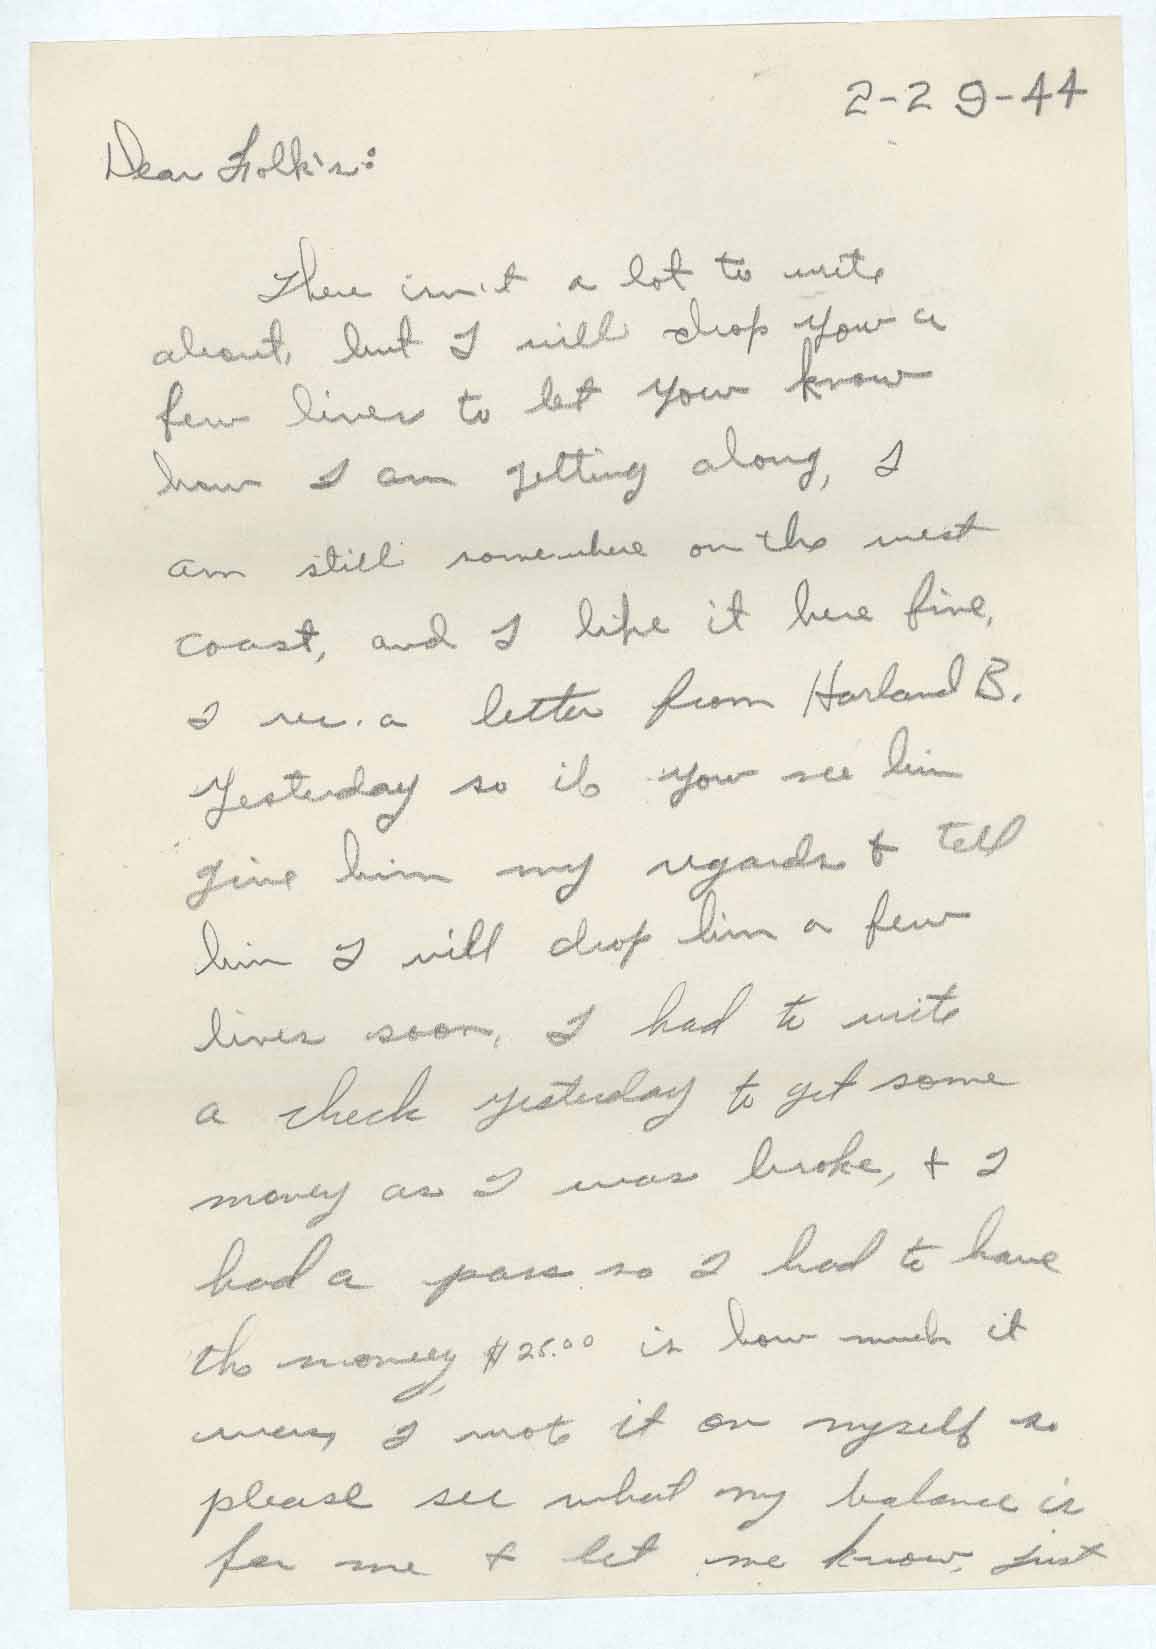 2-29-44
Dear Folk's:
There isn't a lot to write
about, but I will drop you a
few lines to let you know
how I am getting along, I
am still somewhere on the west
coast, and I like it here fine,
I rec. a letter from Harland B.
Yesterday so if you see him
give him my regards & tell
him I will drop him a few
lines soon, I had to write
a check yesterday to get some
money as I was broke, & I
had a pass so I had to have
the money, $25.00 is how much it
was, I wrote it on myself so
please see what my balance is
for me & let me know, just